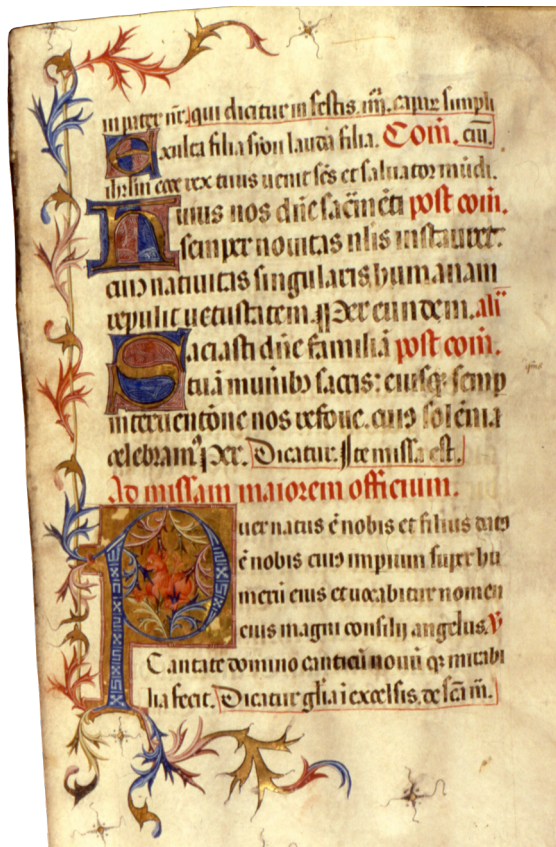 in pater nr̄. qui dicitur in festis. iiij. capis simpli
Exulta filia syon lauda filia. Com̄. cui.
ihrlm ecce rex tuus uenit sc̄s et saluator mūdi.
Nunus nos dn̄e sacm̄ēti post com̄.
semper nouitas nl̄is instauret:
cuiꝰ natiuitas singularis humanam
repulit uetustatem. Per eundem. alia
Saciasti dn̄e familiā post com̄.
tuā munibꝫ sacris: eiusqꝫ semp
interuentōne nos refoue. cuiꝰ solēnia
celebramꝰ Per. Dicatur. Ite missa est.
Ad missam maiorem officium.
Puer natus ē nobis et filius datꝰ
ē nobis cuiꝰ impium super hu
merū eius et uocabitur nomen
eius magni consilij angelus. V
Cantate domino canticū nouū qꝫ mirabi
lia fecit. Dicatur gl̄ia i excelsis. de sc̄a m̄.